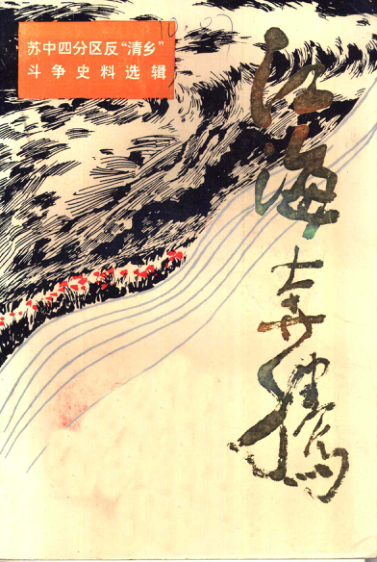 苏中四分区反“清乡”
斗争史料选辑
江海奔腾